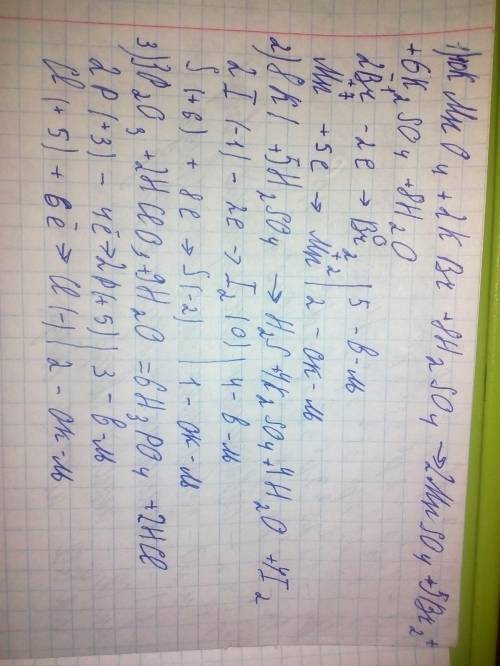 KMnO4 + 2KBr + 8H2SO4 → 2MnSO4 + 5Br2 +
+ 6K2SO4 + 8H2O
2Br⁻¹ - 2e → Br2⁰ | 5 - в-ль
Mn⁺⁷ + 5e → Mn⁺² | 2 - ок-ль
2) 8KI + 5H2SO4 → H2S + 4K2SO4 + 4H2O + 4I2
2I(-1) - 2e → I2(0) | 4 - в-ль
S(+6) + 8e → S(-2) | 1 - ок-ль
3) 3P2O3 + 2HClO3 + 9H2O = 6H3PO4 + 2HCl
2P(+3) - 4ē → 2P(+5) | 3 - в-ль
Cl(+5) + 6ē → Cl(-) | 2 - ок-ль